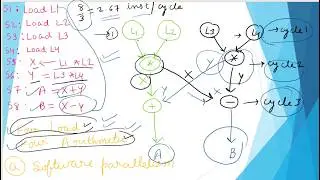 S1: Load L1
S2: Load L2
S3: Load L3
S4: Load L4
S5: X ← L1 * L2
S6: Y = L3 * L4
S7: A = X+Y
S8: B = X-Y
8/3 = 2.67 inst/cycle
L1
L2
L3
L4
cycle1
*
*
cycle2
X
Y
+
-
cycle3
A
B
Four Load
Four Arithmetic
a software parallelism